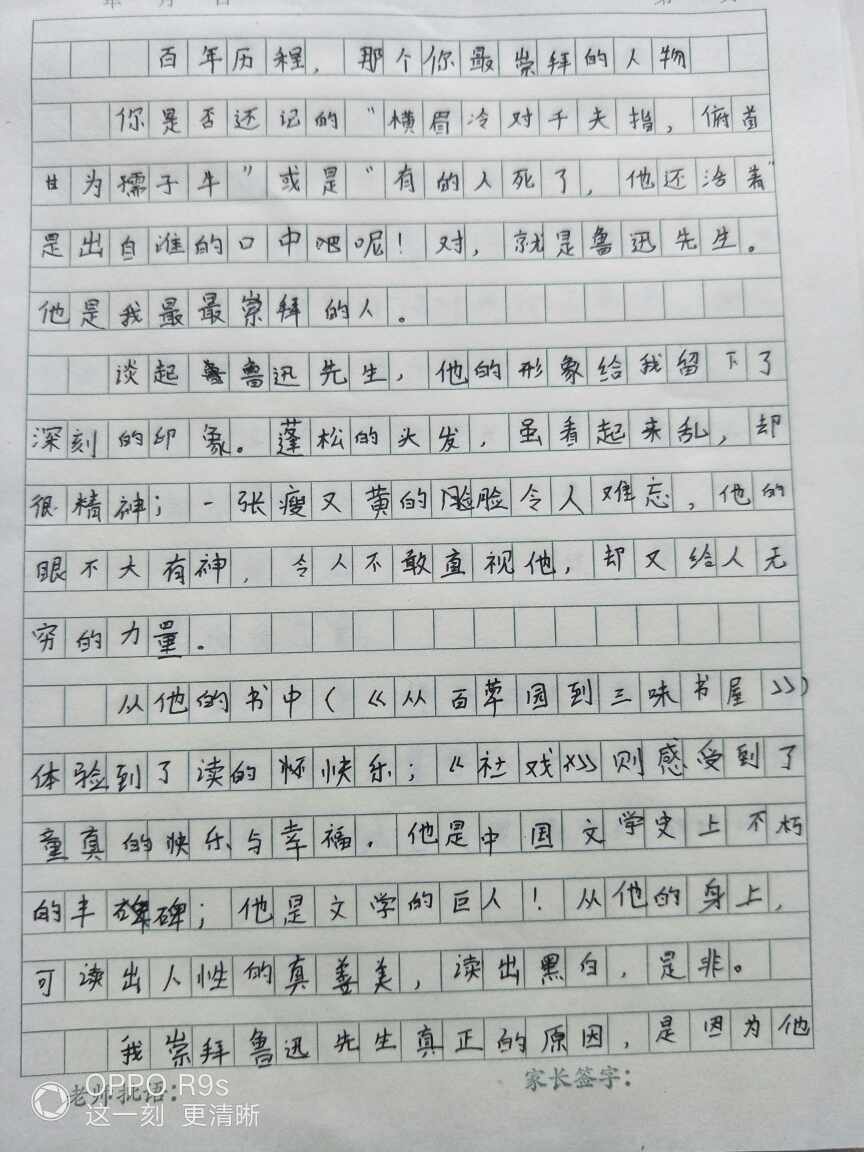 百年历程，那个你最崇拜的人物
你是否还记的“横眉冷对千夫指，俯首
甘为孺子牛”或是“有的人死了，他还活着”
是出自谁的口中吧呢！对，就是鲁迅先生。
他是我最最崇拜的人。
谈起鲁迅先生，他的形象给我留下了
深刻的印象。蓬松的头发，虽看起来乱，却
很精神；一张瘦又黄的脸令人难忘，他的
眼不大有神，令人不敢直视他，却又给人无
穷的力量。
从他的书中（《从百草园到三味书屋》）
体验到了读的快乐；《社戏》则感受到了
童真的快乐与幸福．他是中国文学史上不朽
的丰碑；他是文学的巨人！从他的身上，
可读出人性的真善美，读出黑白，是非。
我崇拜鲁迅先生真正的原因，是因为他
老师批语： 家长签字：
OPPO R9s
这一刻 更清晰